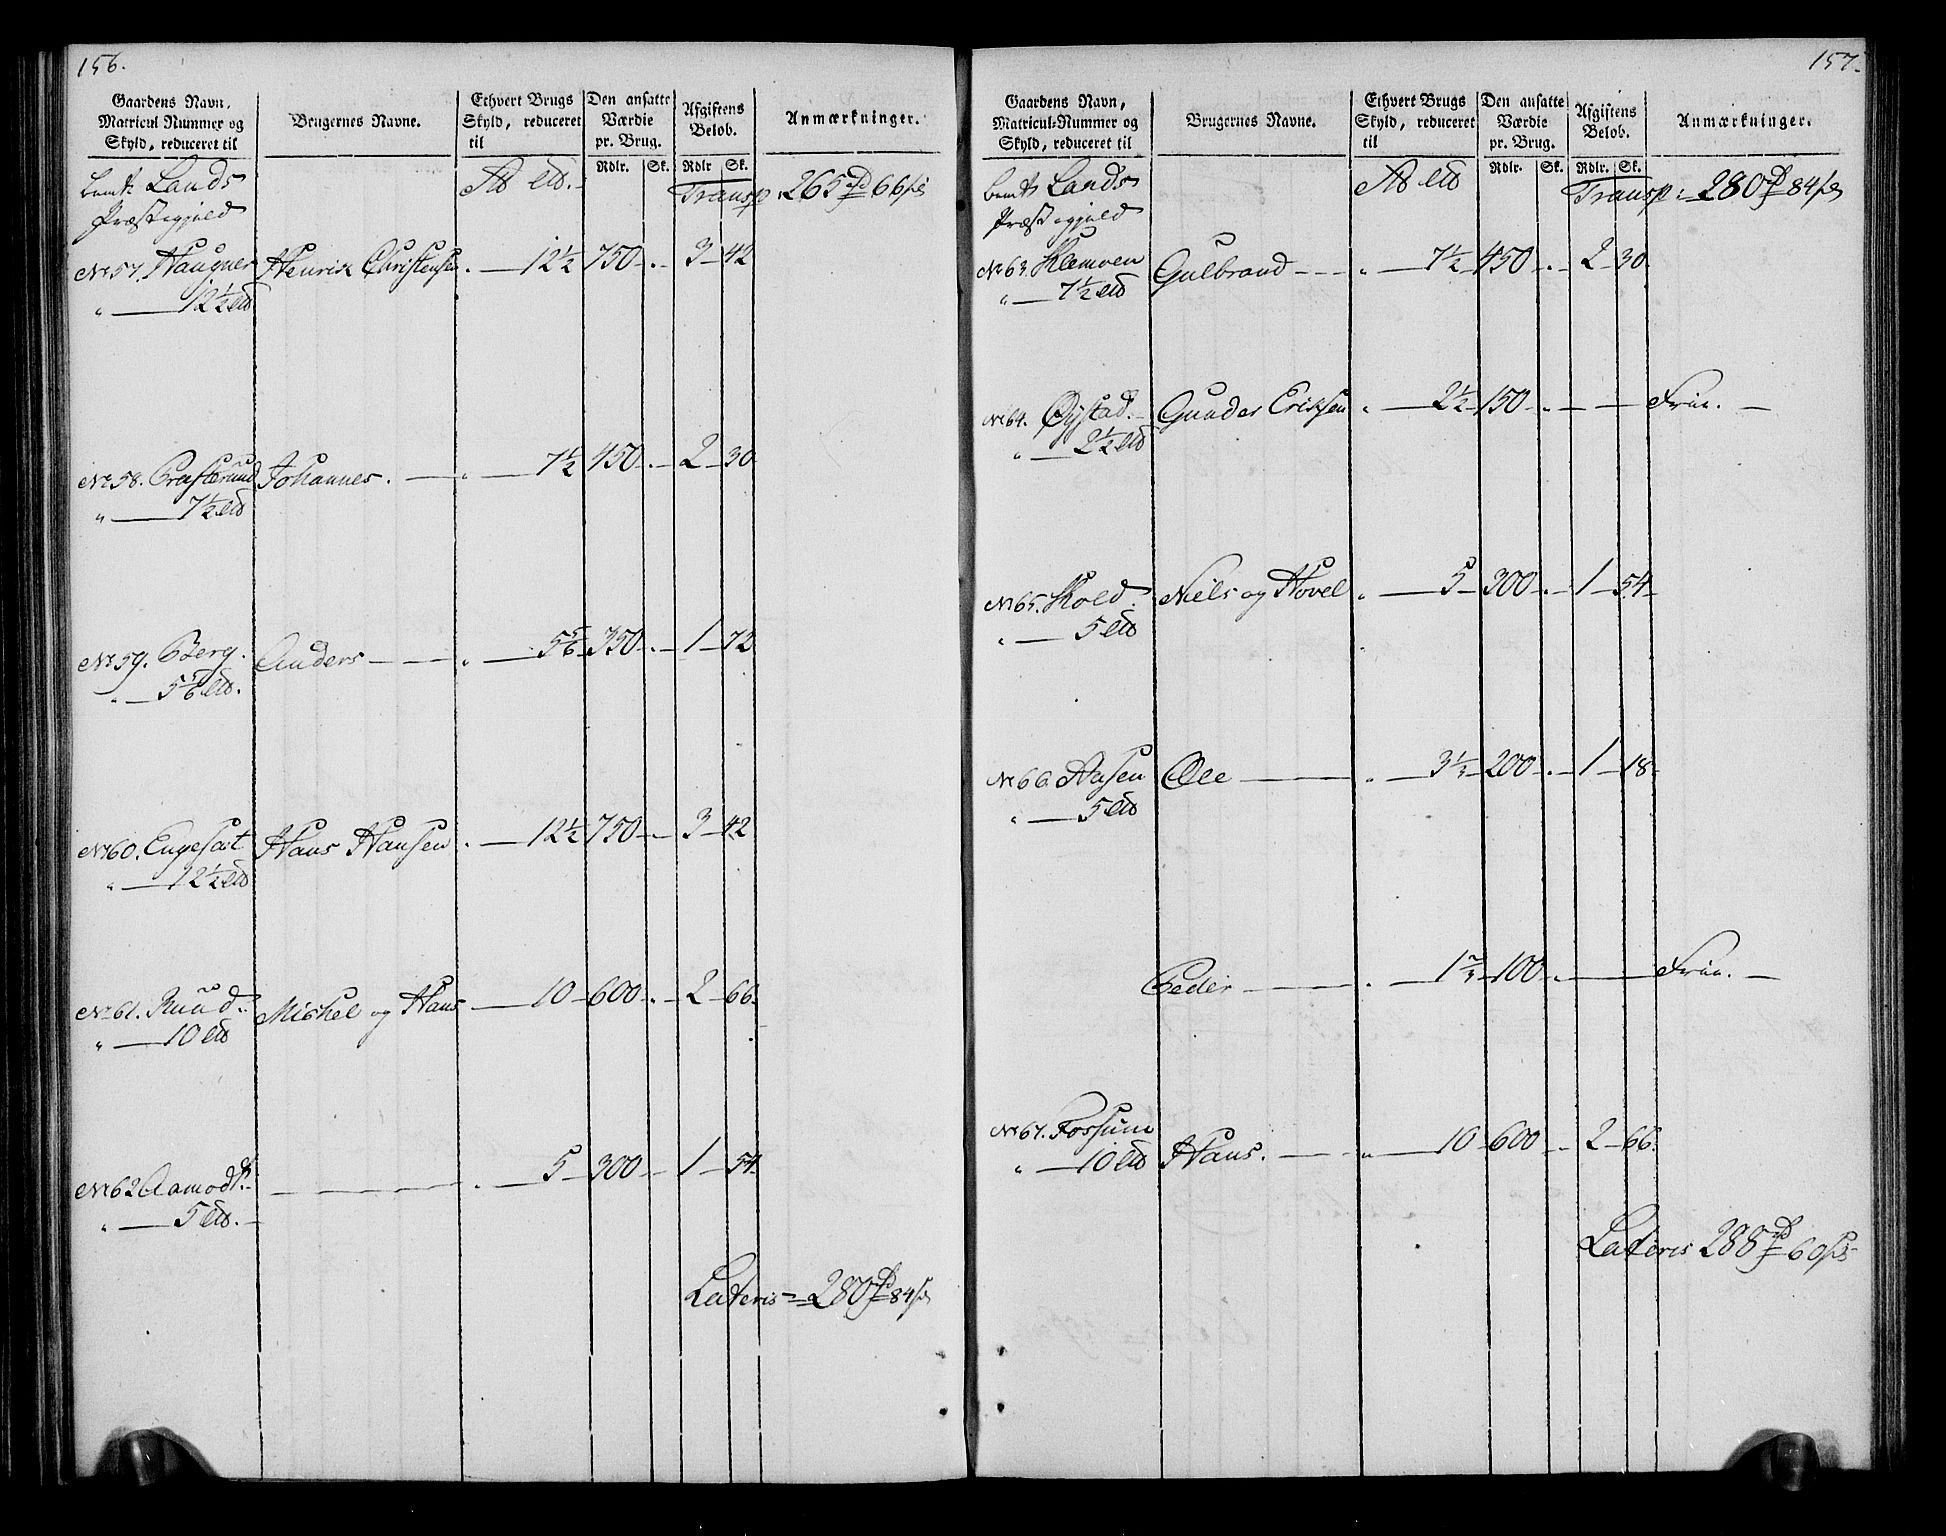 156.
Gaardens Navn, Matricul Nummer og Skyld, reduceret til
Brugernes Navne.
Ethvert Brugs Skyld, reduceret til
Den ansatte Værdie pr. Brug.
Afgiftens Beløb.
Anmærkninger.
Rdlr. Sk. Rdlr Sk.
Lands
Præstegjeld
Transp. 265 66
No 57. Haugner Henrik Christensen. 12½ 750 3 42
" 12½
No 58. Johannes. " 7½ 450 2 30
" 7½
No 59. Berg. Anders " 5 5/6 350 1 72
" 5 5/6
No 60. Engesæt Hans Hansen. 12½ 750 3 42
" 12½
No 61. Ruud. Mickel og Hans 10 600 2 66
" 10
No 62 Aamodt. " 5 300 1 54
" 5
Lateris 280 84
157.
Gaardens Navn, Matricul-Nummer og Skyld, reduceret til
Brugernes Navne.
Ethvert Brugs Skyld, reduceret til
Den ansatte Værdie pr. Brug.
Afgiftens Beløb.
Anmærkninger.
Rdlr. Sk. Rdlr. Sk.
Lands
Præstegjeld
Transp. 280 84
No 63. Klemoen Gulbrand " 7½ 450 2 30
" 7½
No 64. Øystad. Gunder Eriksen " 2½ 150 Frie.
" 2½
No 65. Kold. Niels og Hovel " 5 300 1 54
" 5
No 66. Aasen Ole " 3⅓ 200 1 18
" 5
Peder 1⅔ 100 Frie.
No 67. Fossum Hans. " 10 600 2 66
" 10
Lateris 288 60